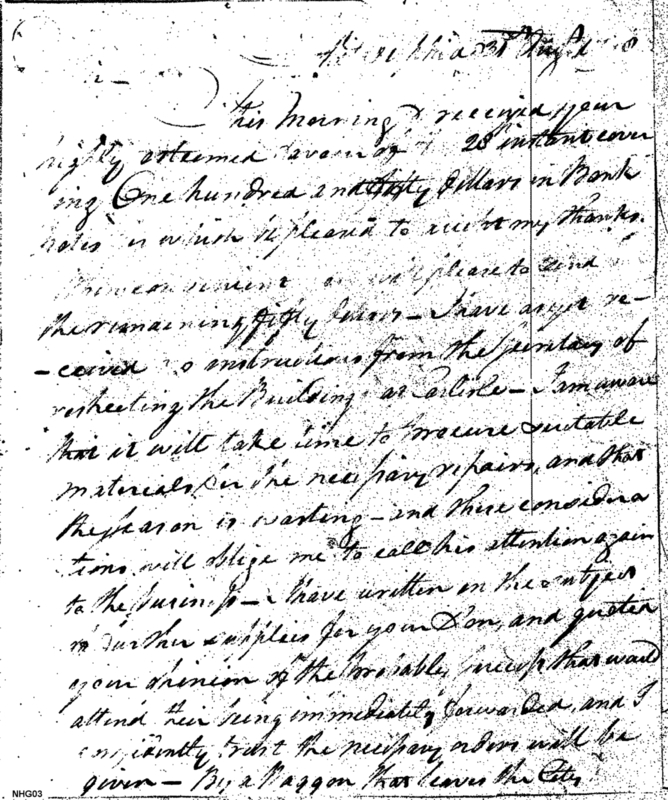 31 Augt
Sir —
This Morning I received your
highly esteemed favour of 28th instant cover
ing One hundred and fifty dollars in Bank
notes for which be pleased to accept my thanks.
When convenient please to send
the remaining fifty — I have as yet re-
-ceived no instructions from the Secretary of
respecting the Buildings at Carlisle — I am aware
that it will take time to procure suitable
materials for the necessary repairs, and that
the season is wasting — and these considera
tions will oblige me to call his attention again
to the business — I have written on the subject
of further supplies for your Son, and quoted
your opinion of the probable success that would
attend their being immediately forwarded, and I
confidently trust the necessary orders will be
given — By a Waggon that leaves the City
NHG03